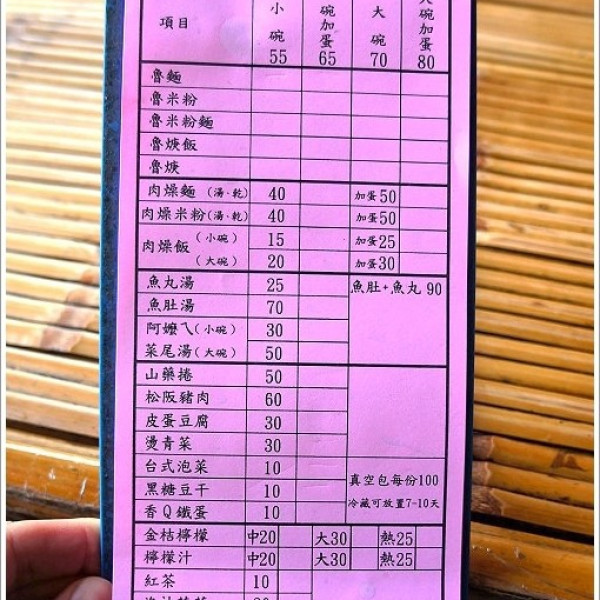 項目 小碗 55 碗加蛋 65 大碗 70 大碗加蛋 80
魯麵
魯米粉
魯米粉麵
魯焿飯
魯焿
肉燥麵(湯、乾) 40 加蛋50
肉燥米粉(湯、乾) 40 加蛋50
肉燥飯 (小碗) 15 加蛋25
(大碗) 20 加蛋30
魚丸湯 25 魚肚+魚丸 90
魚肚湯 70
阿嬤ㄟ(小碗) 30
菜尾湯(大碗) 50
山藥捲 50
松阪豬肉 60
皮蛋豆腐 30
燙青菜 30
台式泡菜 10 真空包每份100
黑糖豆干 10 冷藏可放置7-10天
香Q鐵蛋 10
金桔檸檬 中20 大30 熱25
檸檬汁 中20 大30 熱25
紅茶 10